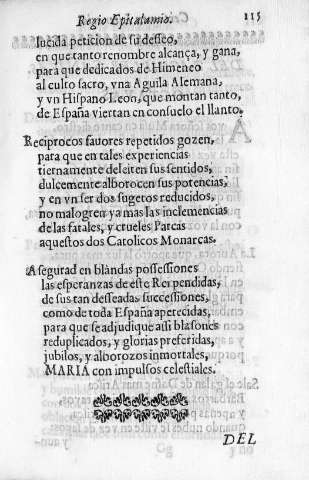 Regio Epitalamio. 115
lucida peticion de su deseo,
en que tanto renombre alcança, y gana,
para que dedicados de Himeneo
al culto sacro, vna Aguila Alemana,
y vn Hispano Leon, que montan tanto,
de España viertan en consuelo el llanto.
Reciprocos fauores repetidos gozen,
para que en tales experiencias
tiernamente deleiten sus sentidos,
dulcemente alborocen sus potencias;
y en vn ser dos sugetos reducidos,
no malogren ya mas las inclemencias
de las fatales, y crueles Parcas
aquestos dos Catolicos Monarcas.
Asegurad en blandas possessiones
las esperanças de este Rei pendidas,
de sus tan desseadas successiones,
como de toda España apetecidas,
para que se adjudique assi blasones
reduplicados, y glorias preferidas,
jubilos, y alborozos inmortales,
MARIA con impulsos celestiales.
DEL